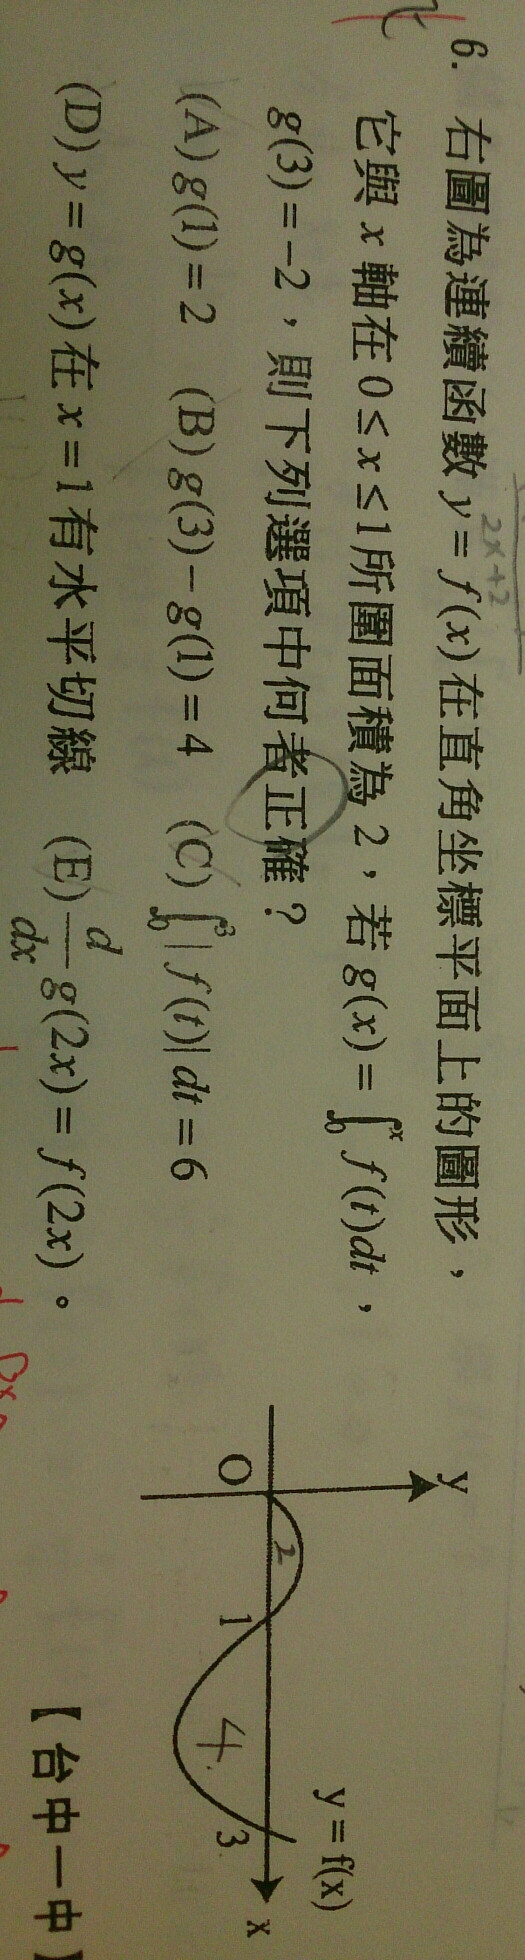 6. 右圖為連續函數 y = f(x) 在直角坐標平面上的圖形，
2x+2
它與 x 軸在 0 ≤ x ≤ 1 所圍面積為 2，若 g(x) = ∫₀ˣ f(t)dt，
g(3) = −2，則下列選項中何者正確？
(A) g(1) = 2 (B) g(3) − g(1) = 4 (C) ∫₀³ |f(t)| dt = 6
(D) y = g(x) 在 x = 1 有水平切線 (E) d/dx g(2x) = f(2x)。
【台中一中】
y
y = f(x)
2
O 1 3 x
4